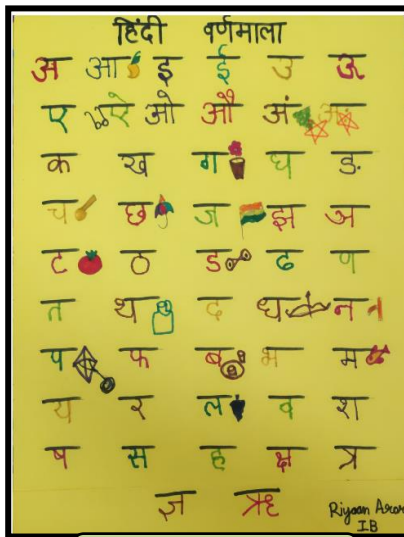 हिंदी वर्णमाला
अ आ इ ई उ ऊ
ए ऐ ओ औ अं अः
क ख ग घ ङ
च छ ज झ ञ
ट ठ ड ढ ण
त थ द ध न
प फ ब भ म
य र ल व श
ष स ह क्ष त्र
ज्ञ ऋ
Riyaan Arora
IB